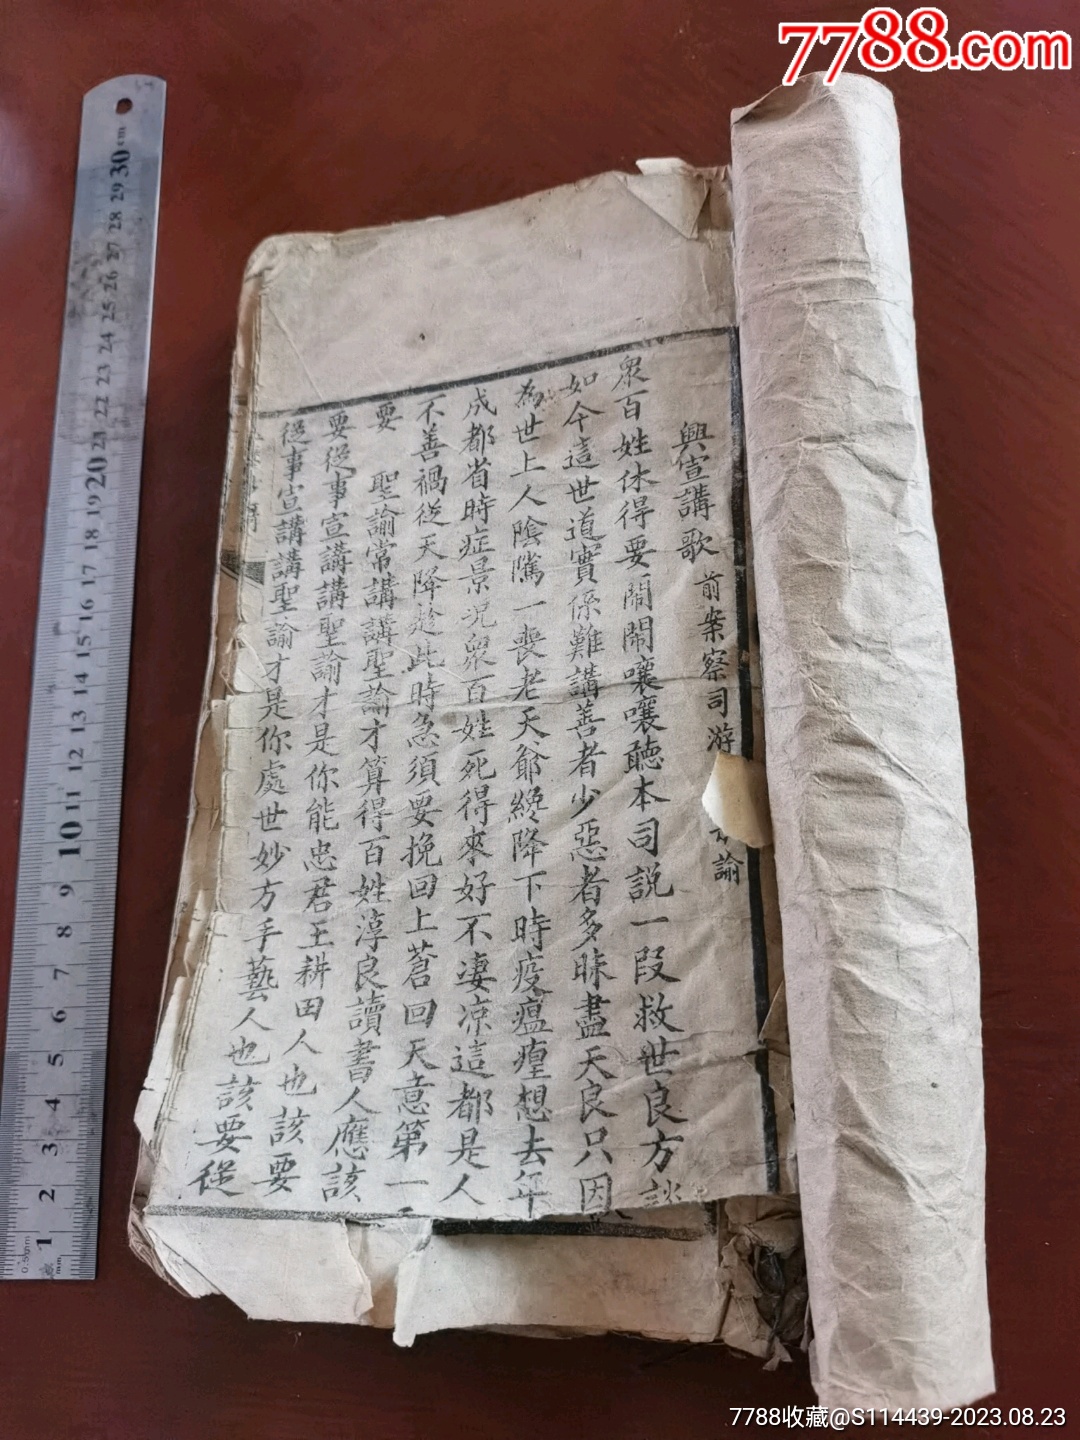 7788.com
興宣講歌 前案察司游 諭
眾百姓休得要鬧鬧嚷嚷聽本司說一段救世良方談
如今這世道實係難講善者少惡者多昧盡天良只因
為世上人陰騭一喪老天爺纔降下時疫瘟瘟想去年
成都省時症景況眾百姓死得來好不淒涼這都是人
不善禍從天降趁此時急須要挽回上蒼回天意第一
要 聖諭常講講聖諭才算得百姓淳良讀書人應該
要從事宣講講聖諭才是你能忠君王耕田人也該要
從事宣講講聖諭才是你處世妙方手藝人也該要從
30 cm
29
28
27
26
25
24
23
22
21
20
19
18
17
16
15
14
13
12
11
10
9
8
7
6
5
4
3
2
1
0.5mm
mm
7788收藏@S114439-2023.08.23